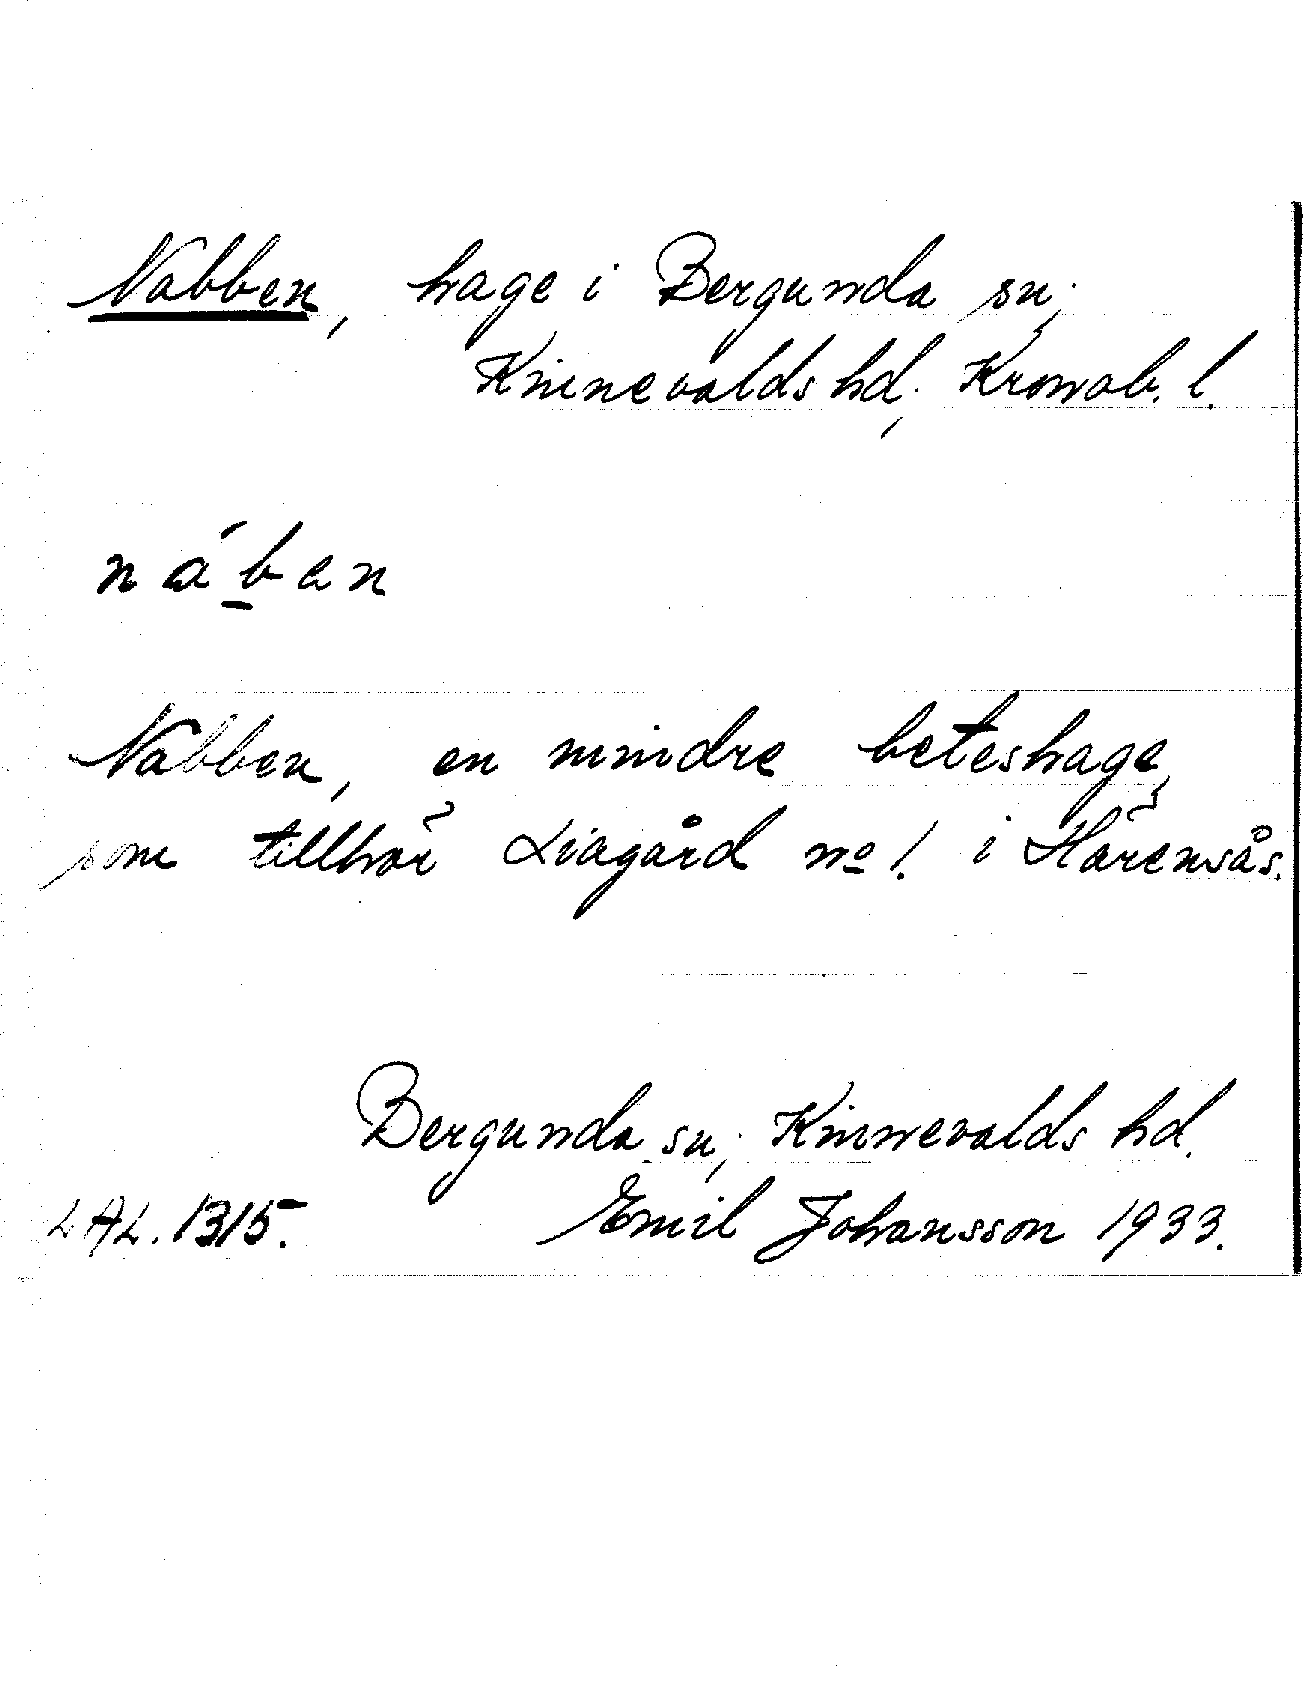 Nabben, hage i Bergunda sn;
Kinnevalds hd; Kronob. l.
náben
Nabben, en mindre beteshage,
som tillhör Liagård no 1. i Hörensås.
Bergunda sn; Kinnevalds hd.
LAL. 1315. Emil Johansson 1933.